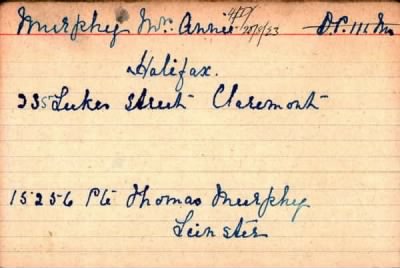 Murphy Mrs. Annie
20/9/23
Halifax.
235 Lukes Street Claremont
15256 Pte Thomas Murphy
Leinster